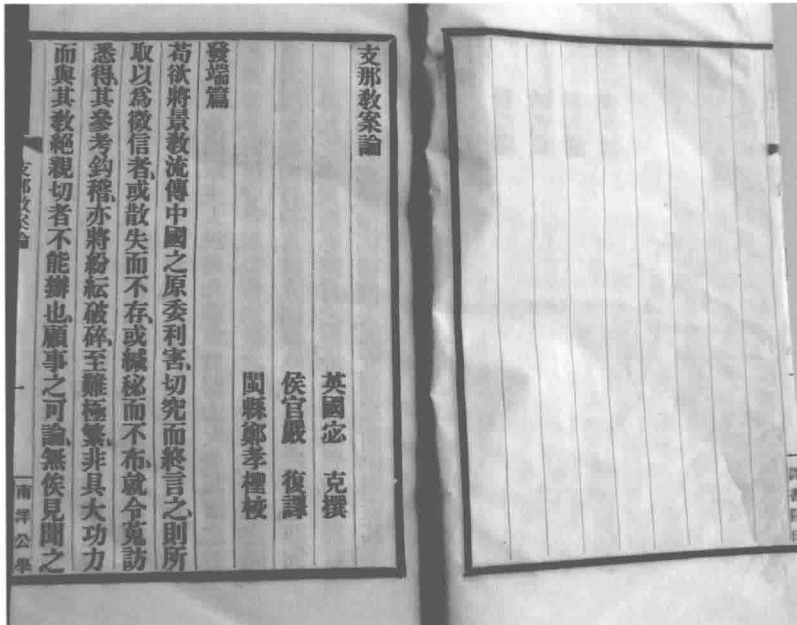 支那教案論
英國宓　克撰
侯官嚴　復譯
閩縣鄭孝檉校
發端篇
苟欲將景教流傳中國之原委利害、切究而終言之、則所
取以爲徵信者、或散失而不存、或緘秘而不布、就令蒐訪
悉得、其參考鈎稽、亦將紛紜破碎、至難極繁、非具大功力
而與其教絕親切者不能辦也、顧事之可論、無俟見聞之
支那教案論
一
南洋公學